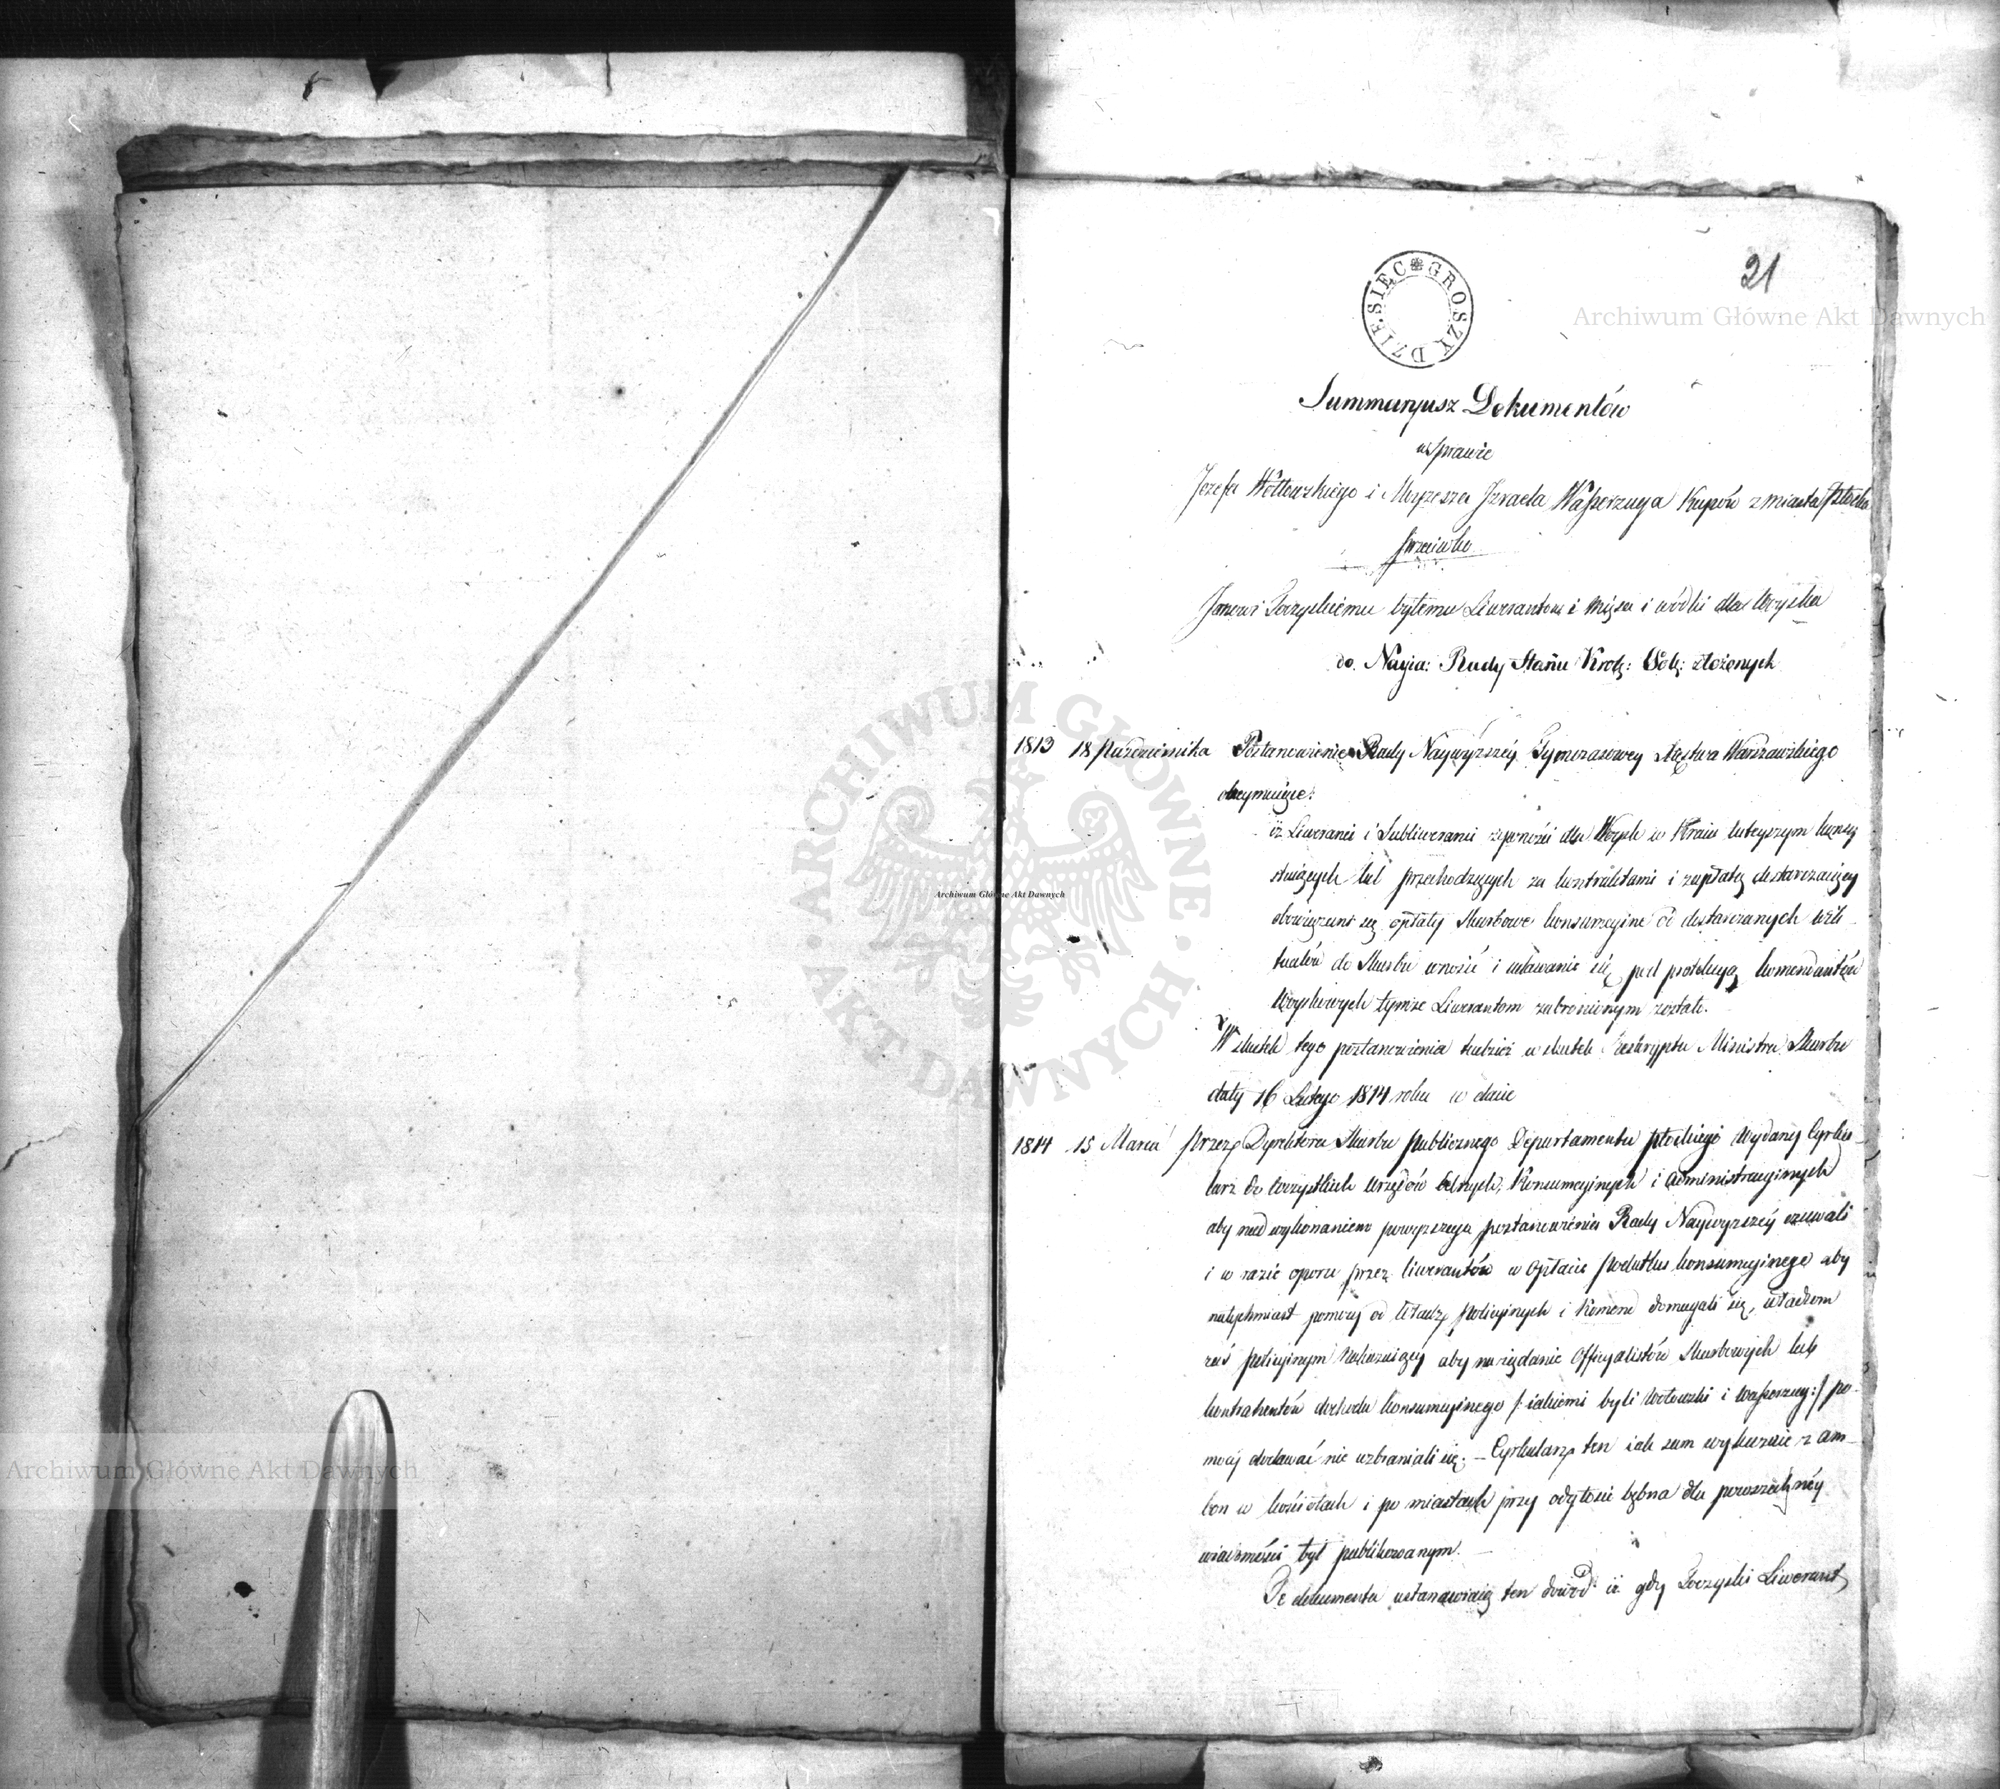 21
DZIESIĘC GROSZY
Summaryusz Dokumentów
w Sprawie
Jozefa Wołłowskiego i Moyzesza Izraela Waszerzuga Kupów z miasta Płocka
przeciwko
Janowi Łoczyskiemu byłemu Liwerantowi mięsa i wódki dla Woyska
do Nayia: Rady Stanu Krols: Pols: złożonych
1813 18 Października Postanowienie Rady Naywyższéy Tymczasowey Xięstwa Warszawskiego
obeymuiące:
iż Liweranci i Subliweranci żywności dla Woysk w Kraiu tuteyszym konsy
stuiących lub przechodzących za kontraktami i zapłatą dostarczaiący
obowiązani są opłaty Skarbowe konsumcyine od dostarczanych wik
tuałów do Skarbu wnosić i udawanie się pod protekcyą komendantów
Woyskowych tymże Liwerantom zabronionym zostało.
W skutek tego postanowienia tudzież w skutek Reskryptu Ministra Skarbu
daty 16 Lutego 1814 roku w dniu
1814 15 Marca przez Dyrektora Skarbu Publicznego Departamentu Płockiego wydany Cyrku-
larz do wszystkich urzędów Celnych, Konsumcyinych i administracyinych
aby nad wykonaniem powyższego postanowienia Rady Naywyższéy czuwali
i w razie oporu przez liwerantów w opłacie podatku konsumcyinego aby
natychmiast pomocy od Władz policyinych i Komend domagali się, władzom
zaś policyinym nakazuiący aby na rządanie Officyalistów Skarbowych lub
kontrahentów dochodu konsumcyinego /: iakiemi byli Wołowski i Waszerzug :/ po-
mocy dodawać nie wzbraniali się. – Cyrkularz ten iak sam wykazuie z am-
bon w kościołach i po miastach przy odgłosie bębna dla powszechnéy
wiadomości był publikowanym. –
Te dokumenta ustanawiaią ten dowód iż gdy Łoczyski Liwerant
Archiwum Główne Akt Dawnych
Archiwum Główne Akt Dawnych
Archiwum Główne Akt Dawnych
ARCHIWUM GŁÓWNE · AKT DAWNYCH ·